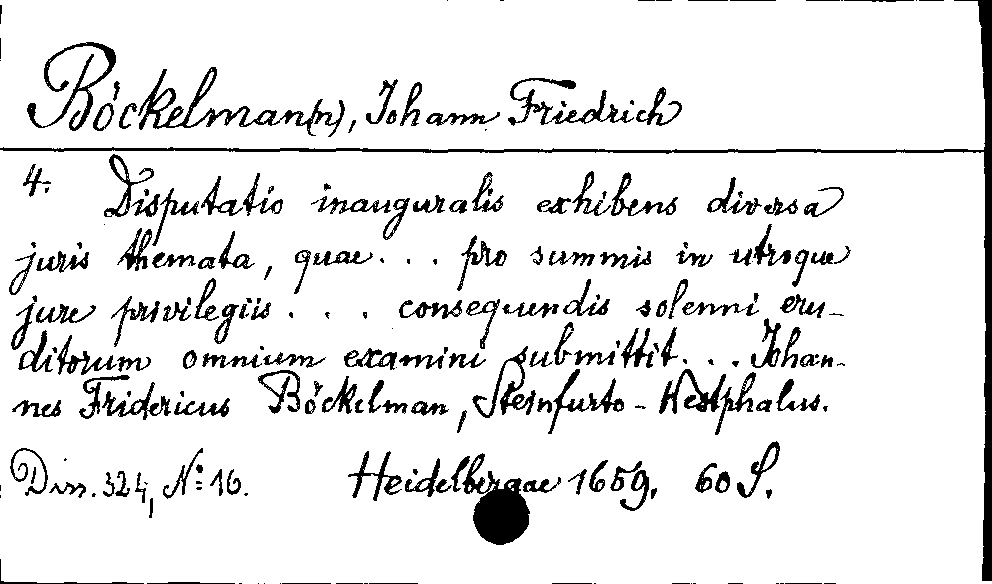 Böckelman(n), Johann Friedrich
4. Disputatio inauguralis exhibens diversa
juris themata, quae . . . pro summis in utroque
jure privilegiis . . . consequendis solenni eru-
ditorum omnium examini submittit . . . Johan-
nes Fridericus Böckelman, Steinfurto-Westphalus.
Diss. 324, No: 16. Heidelbergae 1659. 60 S.